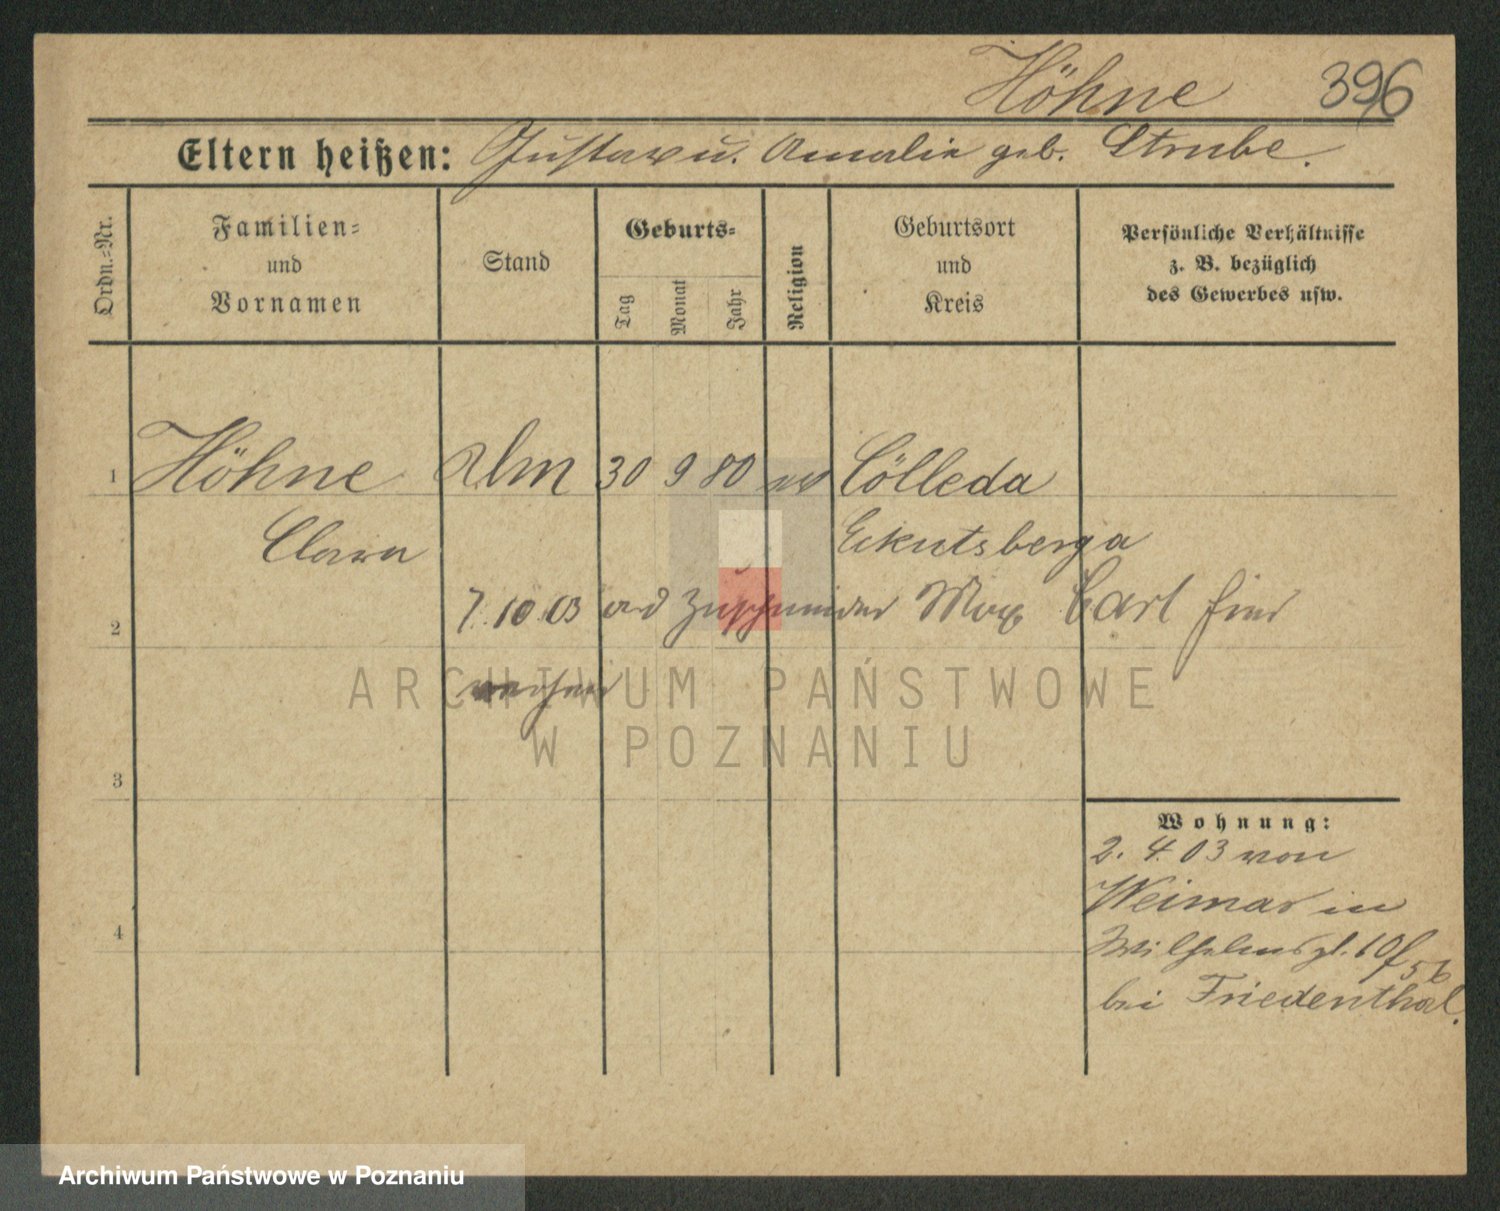 Höhne 396
Eltern heißen: Gustav u. Amalie geb. Strube.
Ordn.=Nr.
Familien=
und
Vornamen
Stand
Geburts=
Tag
Monat
Jahr
Religion
Geburtsort
und
Kreis
Persönliche Verhältnisse
z. B. bezüglich
des Gewerbes usw.
1 Höhne 30 9 80 ev Cölleda
Clara
7.10.03 Zuschneider Max Carl hier
2
3
4
ARCHIWUM PAŃSTWOWE
W POZNANIU
Wohnung:
2. 4. 03 von
Weimar in
Wilhelmspl. 10
bei Friedenthal.
Archiwum Państwowe w Poznaniu